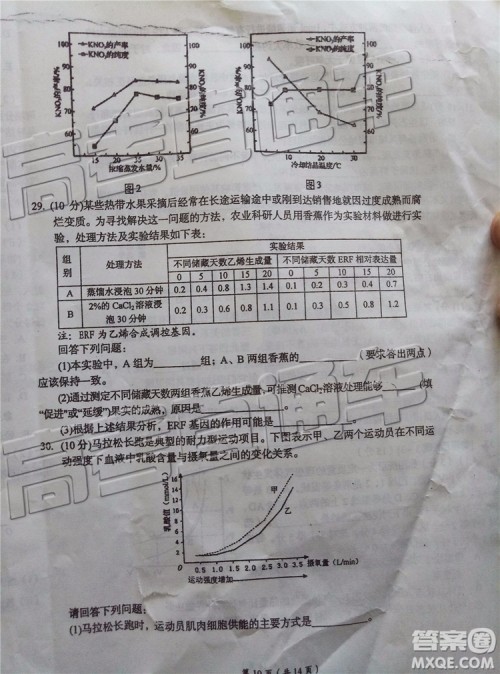 KNO₃的产率
KNO₃的纯度
KNO₃的产率
KNO₃的纯度
KNO₃的产率/%
KNO₃的纯度/%
KNO₃的产率/%
KNO₃的纯度/%
100
90
80
70
60
100
90
80
70
60
15 20 25 30 35
5 10 20 30
浓缩蒸发水量/%
冷却结晶温度/℃
图2
图3
29. (10 分)某些热带水果采摘后经常在长途运输途中或刚到达销售地就因过度成熟而腐
烂变质。为寻找解决这一问题的方法，农业科研人员用香蕉作为实验材料做进行实
验，处理方法及实验结果如下表：
组别 处理方法 实验结果
不同储藏天数乙烯生成量 不同储藏天数 ERF 相对表达量
0 5 10 15 20 0 5 10 15 20
A 蒸馏水浸泡 30 分钟 0.2 0.4 0.8 1.3 1.4 0.1 0.2 0.3 0.4 0.7
B 2%的 CaCl₂溶液浸泡 30 分钟 0.2 0.3 0.6 0.8 1.1 0.1 0.3 0.5 0.8 1.2
注：ERF 为乙烯合成调控基因。
回答下列问题：
(1)本实验中，A 组为______组；A、B 两组香蕉的______（要求答出两点）
应该保持一致。
(2)通过测定不同储藏天数两组香蕉乙烯生成量，可推测 CaCl₂溶液处理能够______（填
“促进”或“延缓”）果实的成熟，原因是______。
(3)根据上述结果分析，ERF 基因的作用可能是______。
30. (10 分)马拉松长跑是典型的耐力型运动项目。下图表示甲、乙两个运动员在不同运
动强度下血液中乳酸含量与摄氧量之间的变化关系。
乳酸值 (mmol/L)
16
14
12
10
8
6
4
2
甲
乙
0.5 1.0 1.5 2.0 2.5 3.0 3.5
摄氧量 (L/min)
运动强度增加
请回答下列问题：
(1)马拉松长跑时，运动员肌肉细胞供能的主要方式是______。
第10页 (共14页)
高考直通车
高考直通车
答案圈
MXQE.COM